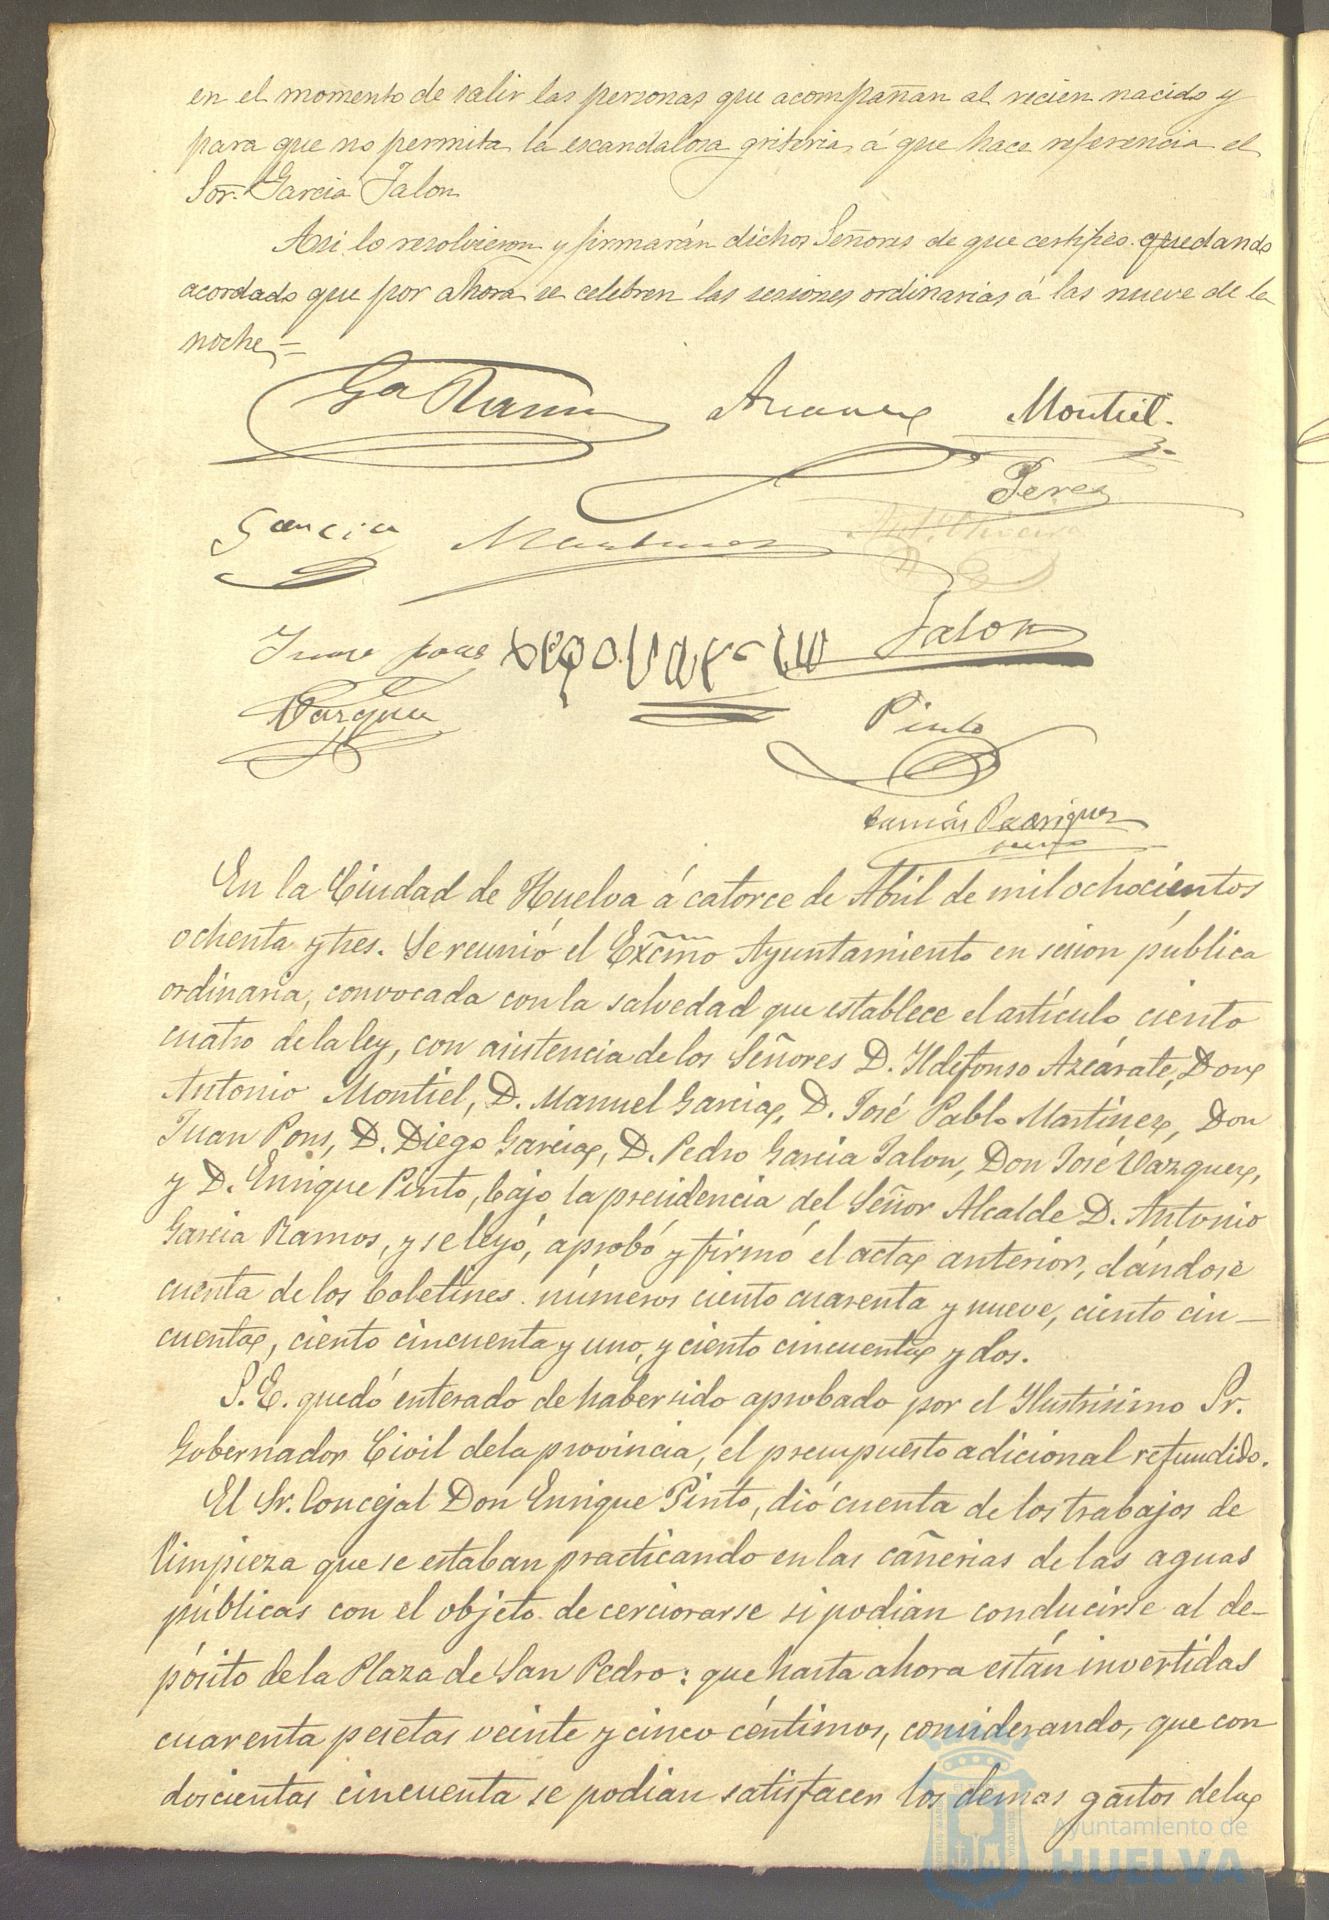 en el momento de salir las personas que acompañan al recien nacido y
para que no permita la escandalosa griteria, á que hace referencia el
Sor. Garcia Jalon
Asi lo resolvieron y firmarán dichos Señores de que certifico. quedando
acordado que por ahora se celebren las sesiones ordinarias á las nueve de la
noche,=
Ga Ramos Montiel.
Perez
Garcia Martinez
Jalon
Vazquez
Pinto
Rodriguez
En la Ciudad de Huelva á catorce de Abril de mil ochocientos
ochenta y tres. Se reunió el Excmo Ayuntamiento en sesion pública
ordinaria, convocada con la salvedad que establece el artículo ciento
cuatro de la ley, con asistencia de los Señores D. Ildefonso Azcárate, Don
Antonio Montiel, D. Manuel Garcia, D. José Pablo Martinez, Don
Juan Pons, D. Diego Garcia, D. Pedro Garcia Jalon, Don José Vazquez,
y D. Enrique Pinto, bajo la presidencia del Señor Alcalde D. Antonio
Garcia Ramos, y se leyó, aprobó y firmó el acta anterior, dándose
cuenta de los boletines números ciento cuarenta y nueve, ciento cin-
cuenta, ciento cincuenta y uno, y ciento cincuenta y dos.
S. E. quedó enterado de haber sido aprobado por el Ilustrisimo Sr.
Gobernador Civil de la provincia, el presupuesto adicional refundido.
El Sr. Concejal Don Enrique Pinto, dió cuenta de los trabajos de
limpieza que se estaban practicando en las cañerias de las aguas
públicas con el objeto de cerciorarse si podian conducirse al de-
pósito de la Plaza de San Pedro: que hasta ahora están invertidas
cuarenta pesetas veinte y cinco céntimos, considerando, que con
doscientas cincuenta se podian satisfacer los demas gastos de la
Ayuntamiento de
HUELVA